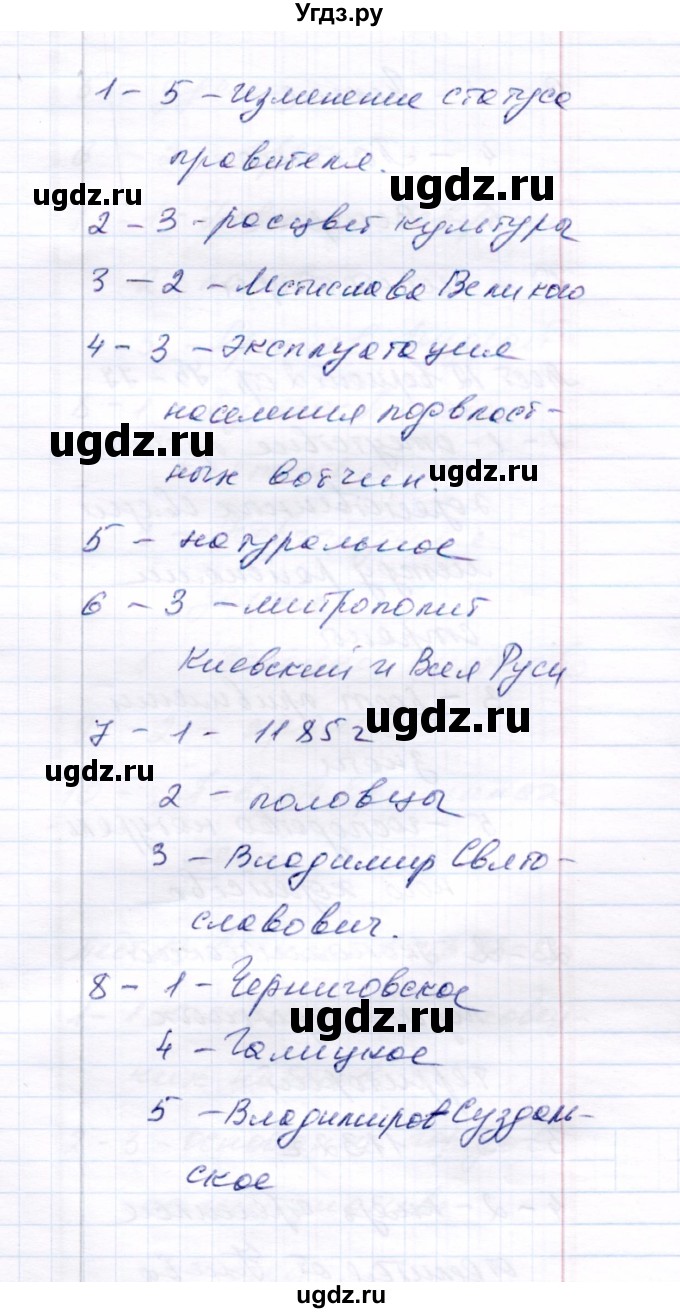 Угдз.ру
1 - 5 - Изменение статуса
правителя.
ugdz.ru
ugdz.ru
2 - 3 - расцвет культуры
3 - 2 - Мстислава Великого
4 - 3 - Эксплуатация
населения подвласт-
ugdz.ru
ных вотчин.
ugdz.ru
5 - натуральное
6 - 3 - митрополит
Киевский и Всея Руси
7 - 1 - 1185 г
ugdz.ru
ugdz.ru
2 - половцы
3 - Владимир Свято-
славович.
8 - 1 - Черниговское
ugdz.ru
4 - Галицкое
5 - Владимиро Суздаль-
ское
ugdz.ru